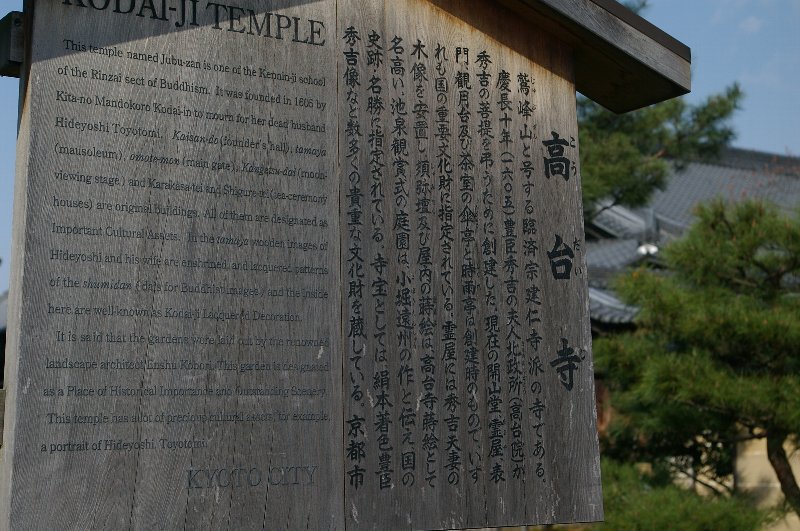 KODAI-JI TEMPLE
This temple named Jubu-zan is one of the Kennin-ji school
of the Rinzai sect of Buddhism. It was founded in 1605 by
Kita-no Mandokoro Kodai-in to mourn for her dead husband
Hideyoshi Toyotomi. Kaisan-do (founder's hall), tamaya
(mausoleum), omote-mon (main gate), Kangetsu-dai (moon-
viewing stage) and Karakasa-tei and Shigure-tei (tea-ceremony
houses) are original Buildings. All of them are designated as
Important Cultural Assets. In the tamaya wooden images of
Hideyoshi and his wife are enshrined, and lacquered patterns
of the shumidan (dais for Buddhist images) and the inside
here are well known as Kodai-ji Lacquered Decoration.
It is said that the gardens were laid out by the renowned
landscape architect Enshu Kobori. This garden is designated
as a Place of Historical Importance and Outstanding Scenery.
This temple has a lot of precious cultural assets, for example,
a portrait of Hideyoshi Toyotomi.
KYOTO CITY
高台寺
こうだいじ
鷲峰山と号する臨済宗建仁寺派の寺である。
慶長十年(一六〇五)豊臣秀吉の夫人北政所(高台院)が
秀吉の菩提を弔うために創建した。現在の開山堂、霊屋、表
門、観月台及び茶室の傘亭と時雨亭は創建時のもので、いず
れも国の重要文化財に指定されている。霊屋には秀吉夫妻の
木像を安置し、須弥壇及び屋内の蒔絵は、高台寺蒔絵として
名高い。池泉観賞式の庭園は、小堀遠州の作と伝え、国の
史跡・名勝に指定されている。寺宝としては、絹本著色豊臣
秀吉像など数多くの貴重な文化財を蔵している。
京都市